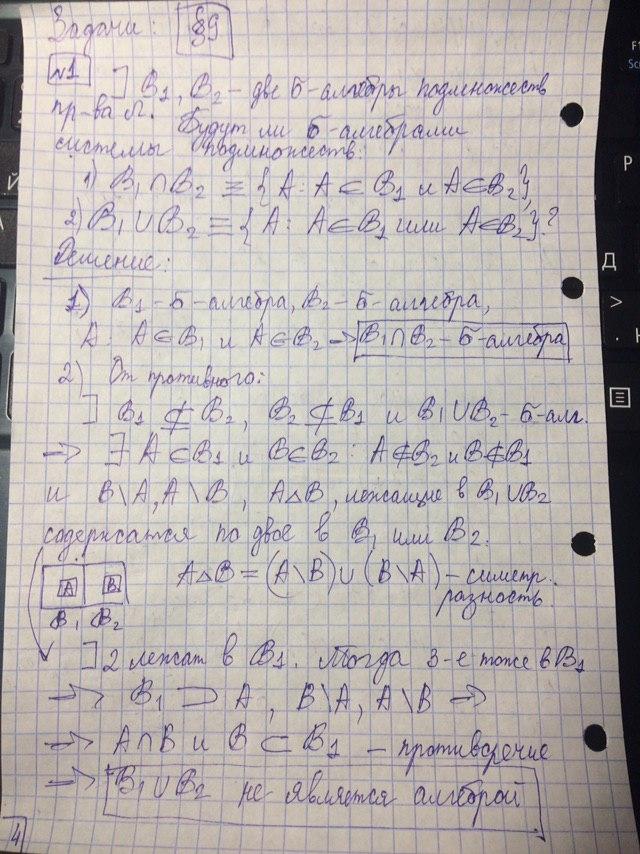 Задачи: §9
№1 ] B₁, B₂ – две б-алгебры подмножеств
пр-ва Ω. Будут ли б-алгебрами
системы подмножеств:
1) B₁∩B₂ ≡ {A: A∈B₁ и A∈B₂},
2) B₁∪B₂ ≡ {A: A∈B₁ или A∈B₂}?
Решение:
1) B₁-б-алгебра, B₂-б-алгебра,
A: A∈B₁ и A∈B₂ → B₁∩B₂-б-алгебра
2) От противного:
] B₁ ⊄ B₂, B₂ ⊄ B₁ и B₁∪B₂-б-алг.
→ ∃ A∈B₁ и B∈B₂: A∉B₂ и B∉B₁
и B\A, A\B, A△B, лежащие в B₁∪B₂
содержатся по двое в B₁ или B₂.
A△B = (A\B)∪(B\A) – симетр.
разность
A B
B₁ B₂
] 2 лежат в B₁. Тогда 3-е тоже в B₁
→ B₁ ⊃ A, B\A, A\B →
→ A∩B и B ⊂ B₁ – противоречие
→ B₁∪B₂ не является алгеброй
4
Й
F1
Р
Д
>
.